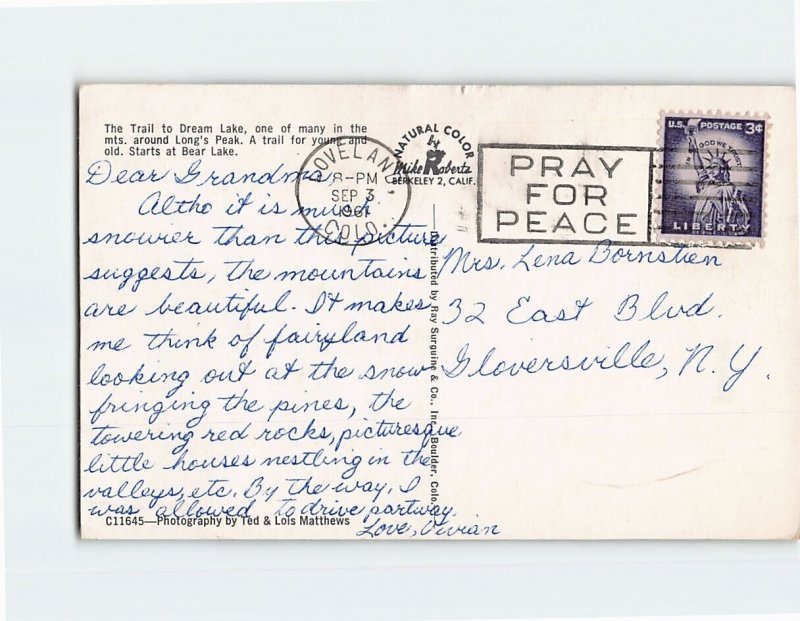 The Trail to Dream Lake, one of many in the
mts. around Long's Peak. A trail for young and
old. Starts at Bear Lake.
LOVELAND,
8-PM
SEP 3
1961
COLO.
NATURAL COLOR
by
Mike Roberts
BERKELEY 2, CALIF.
PRAY
FOR
PEACE
U.S. POSTAGE 3¢
IN GOD WE TRUST
LIBERTY
Dear Grandma,
Altho it is much
snowier than the picture
suggests, the mountains
are beautiful. It makes
me think of fairyland
looking out at the snow
fringing the pines, the
towering red rocks, picturesque
little houses nestling in the
valleys, etc. By the way, I
was allowed to drive partway.
Love, Vivian
C11645—Photography by Ted & Lois Matthews
Distributed by Ray Surguine & Co., Inc., Boulder, Colo.
Mrs. Lena Bornstien
32 East Blvd.
Gloversville, N.Y.